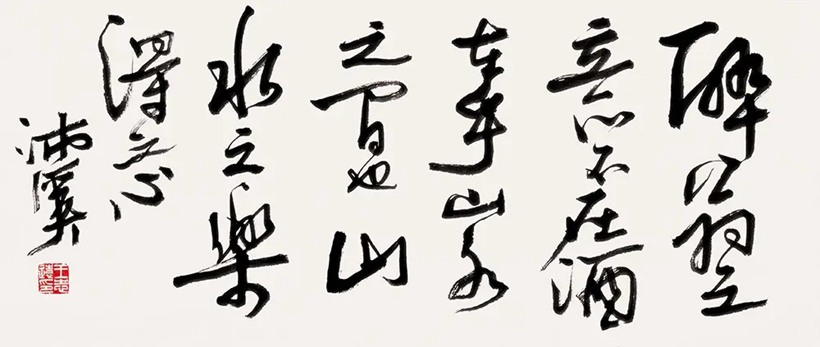 醉翁之
意不在酒
在乎山水
之間也山
水之樂
得之心